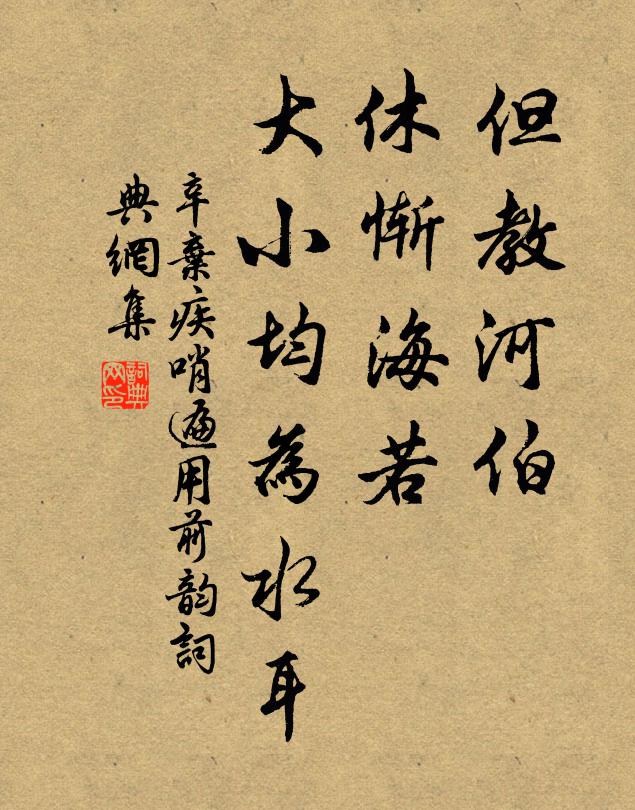 但教河伯
休慚海若
大小均為水耳
辛棄疾哨遍用前韵詞
典網集
詞典網印